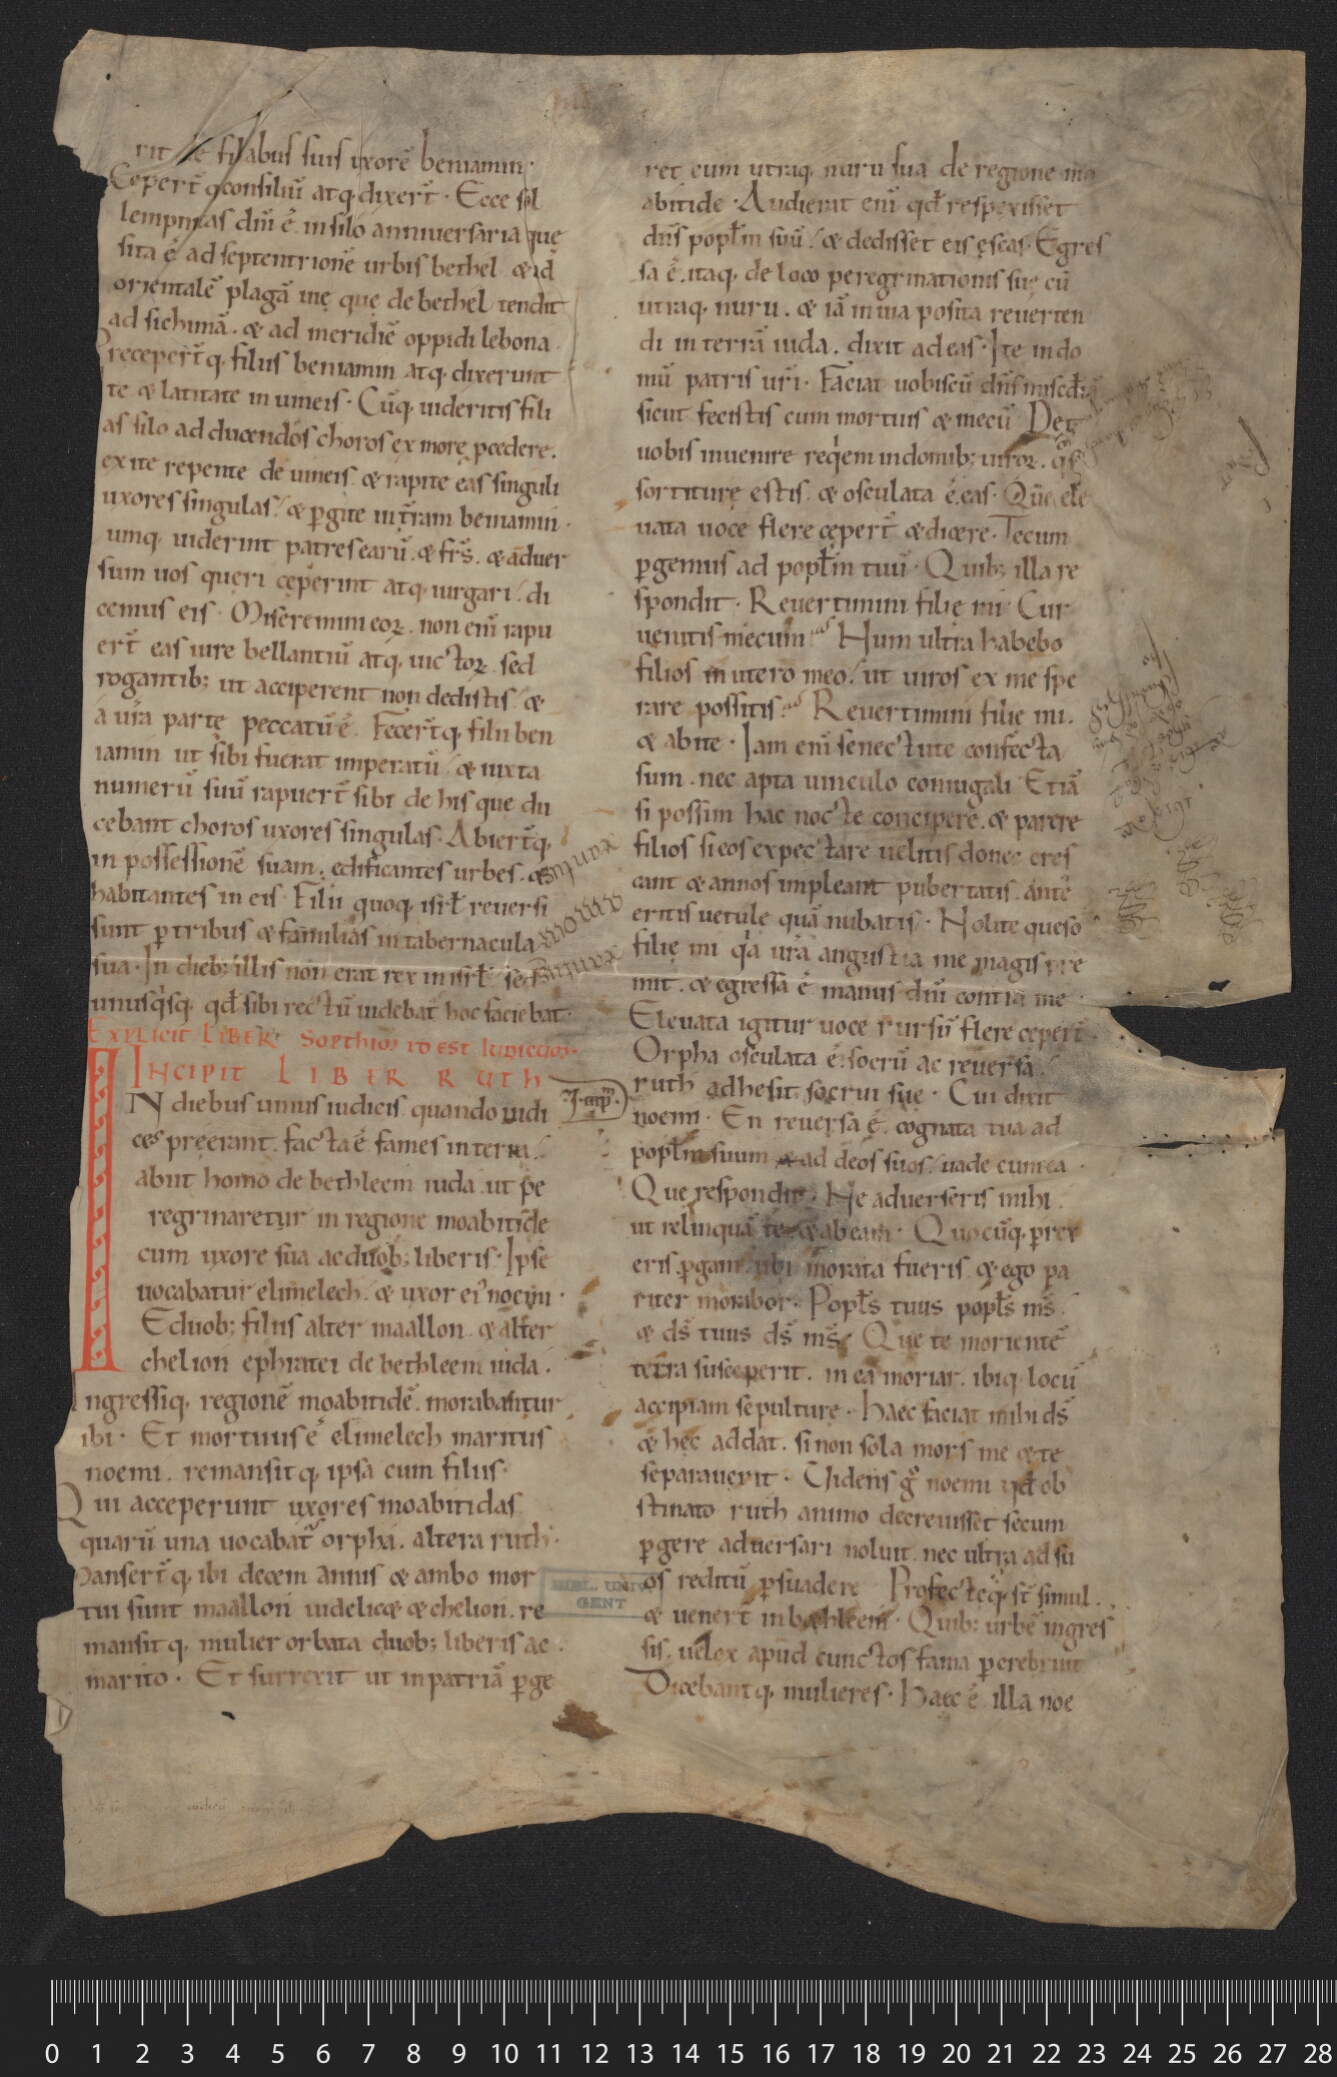 rit de filiabus suis uxorē beniamin·
Cepert̄ q̨ consiliū atq; dixert̄· Ecce sol
lempnitas dn̄i ē in silo anniuersaria que
sita ē ad septentrionē urbis bethel & ad
orientalē plagā uię que de bethel tendit
ad sichimā. & ad meridiē oppidi lebona
Precepert̄q; filiis beniamin atq; dixerunt
Ite & latitate in uineis· Cūq; uideritis fili
as silo ad ducendos choros ex more pcedere.
exite repente de uineis & rapite eas singuli
uxores singulas. & pgite in tr̄am beniamin·
umq; uiderint patres earū. & frs̄. & aduer
sum uos queri ceperint atq; iurgari. di
cemus eis· Miseremini eoꝝ. non enī rapu
ert̄ eas iure bellantiū atq; uictoꝝ. sed
rogantib; ut acciperent non dedistis. &
a ur̄a parte peccatū ē. Fecert̄q; filii ben
iamin ut sibi fuerat imperatū. & iuxta
numerū suū rapuert̄ sibi de his que du
cebant choros uxores singulas. Abiert̄q;
in possessionē suam. edificantes urbes. &
habitantes in eis· Filii quoq; isrł reuersi
sunt p tribus & familias in tabernacula
sua· In dieb; illis non erat rex in isrł sed
unusq̇sq; qđ sibi rectū uidebat̄ hoc faciebat·
Explicit Liber Sopthim id est Iudicum.
Incipit Liber Ruth
IN diebus unius iudicis quando iudi
ces preerant. facta ē fames in terra.
abiit homo de bethleem iuda ut pe
regrinaretur in regione moabitide
cum uxore sua ac duob; liberis· Ipse
uocabatur elimelech. & uxor ei' noemi·
E duob; filiis alter maallon & alter
chelion ephratei de bethleem iuda.
Ingressiq; regionē moabitidē. morabantur
ibi· Et mortuus ē elimelech maritus
noemi. remansitq; ipsa cum filiis·
Qui acceperunt uxores moabitidas
quarū una uocabat̄ orpha. altera ruth·
Mansert̄q; ibi decem annis & ambo mor
tui sunt maallon uidelic& & chelion. re
mansitq; mulier orbata duob; liberis ac
marito· Et surrexit ut in patriā pge
ret cum utraq; nuru sua de regione mo
abitide· Audierat enī qđ respexisset
dn̄s popłm suū. & dedisset eis escas· Egres
sa ē itaq; de loco peregrinationis suę cū
utraq; nuru. & iā in uia posita reuerten
di in terrā iuda. dixit ad eas· Ite in do
mū patris ur̄i· Faciat uobiscū dn̄s misedi̇ā
sicut fecistis cum mortuis & mecū Det
uobis inuenire req̇em in domib; uiroꝝ. q̇s
sortiturę estis. & osculata ē eas· Que ele
uata uoce flere cepert̄ & dicere· Tecum
pgemus ad popłm tuū· Quib; illa re
spondit· Reuertimini filię mi Cur
uenitis mecum Num ultra habebo
filios in utero meo. ut uiros ex me spe
rare possitis. Reuertimini filie mi.
& abite· Iam enī senectute confecta
sum. nec apta uinculo coniugali Etiā
si possim hac nocte concipere. & parere
filios si eos expectare uelitis donec cres
cant & annos impleant pubertatis. ante
eritis uetule quā nubatis· Nolite queso
filię mi q̇a ur̄a angustia me magis pre
mit. & egressa ē manus dn̄i contra me·
Eleuata igitur uoce rursū flere cepert̄·
Orpha osculata ē socrū ac reuersa.
ruth adhesit socrui suę· Cui dixit
noemi· En reuersa ē cognata tua ad
popłm suum & ad deos suos. uade cum ea
Que respondit· Ne aduerseris mihi
ut relinquā te & abeam· Quocūq; prex
eris pgam. ubi morata fueris & ego pa
riter morabor. Popłs tuus popłs ms̄.
& ds̄ tuus ds̄ ms̄. Que te morientē
terra susceperit. in ea moriar. ibiq; locū
accipiam sepulturę· Haec faciat mihi ds̄
& hęc addat. si non sola mors me & te
separauerit· Uidens g̊ noemi qđ ob
stinato ruth animo decreuisset secum
pgere aduersari noluit nec ultra ad su
os reditū psuadere Profecteq; st̄ simul.
& uenert̄ in b&hleem· Quib; urbē ingres
sis. uelox apud cunctos fama pcrebruit
Dicebantq; mulieres· Haec ē illa noe
BIBL. UNIV.
GENT
0 1 2 3 4 5 6 7 8 9 10 11 12 13 14 15 16 17 18 19 20 21 22 23 24 25 26 27 28